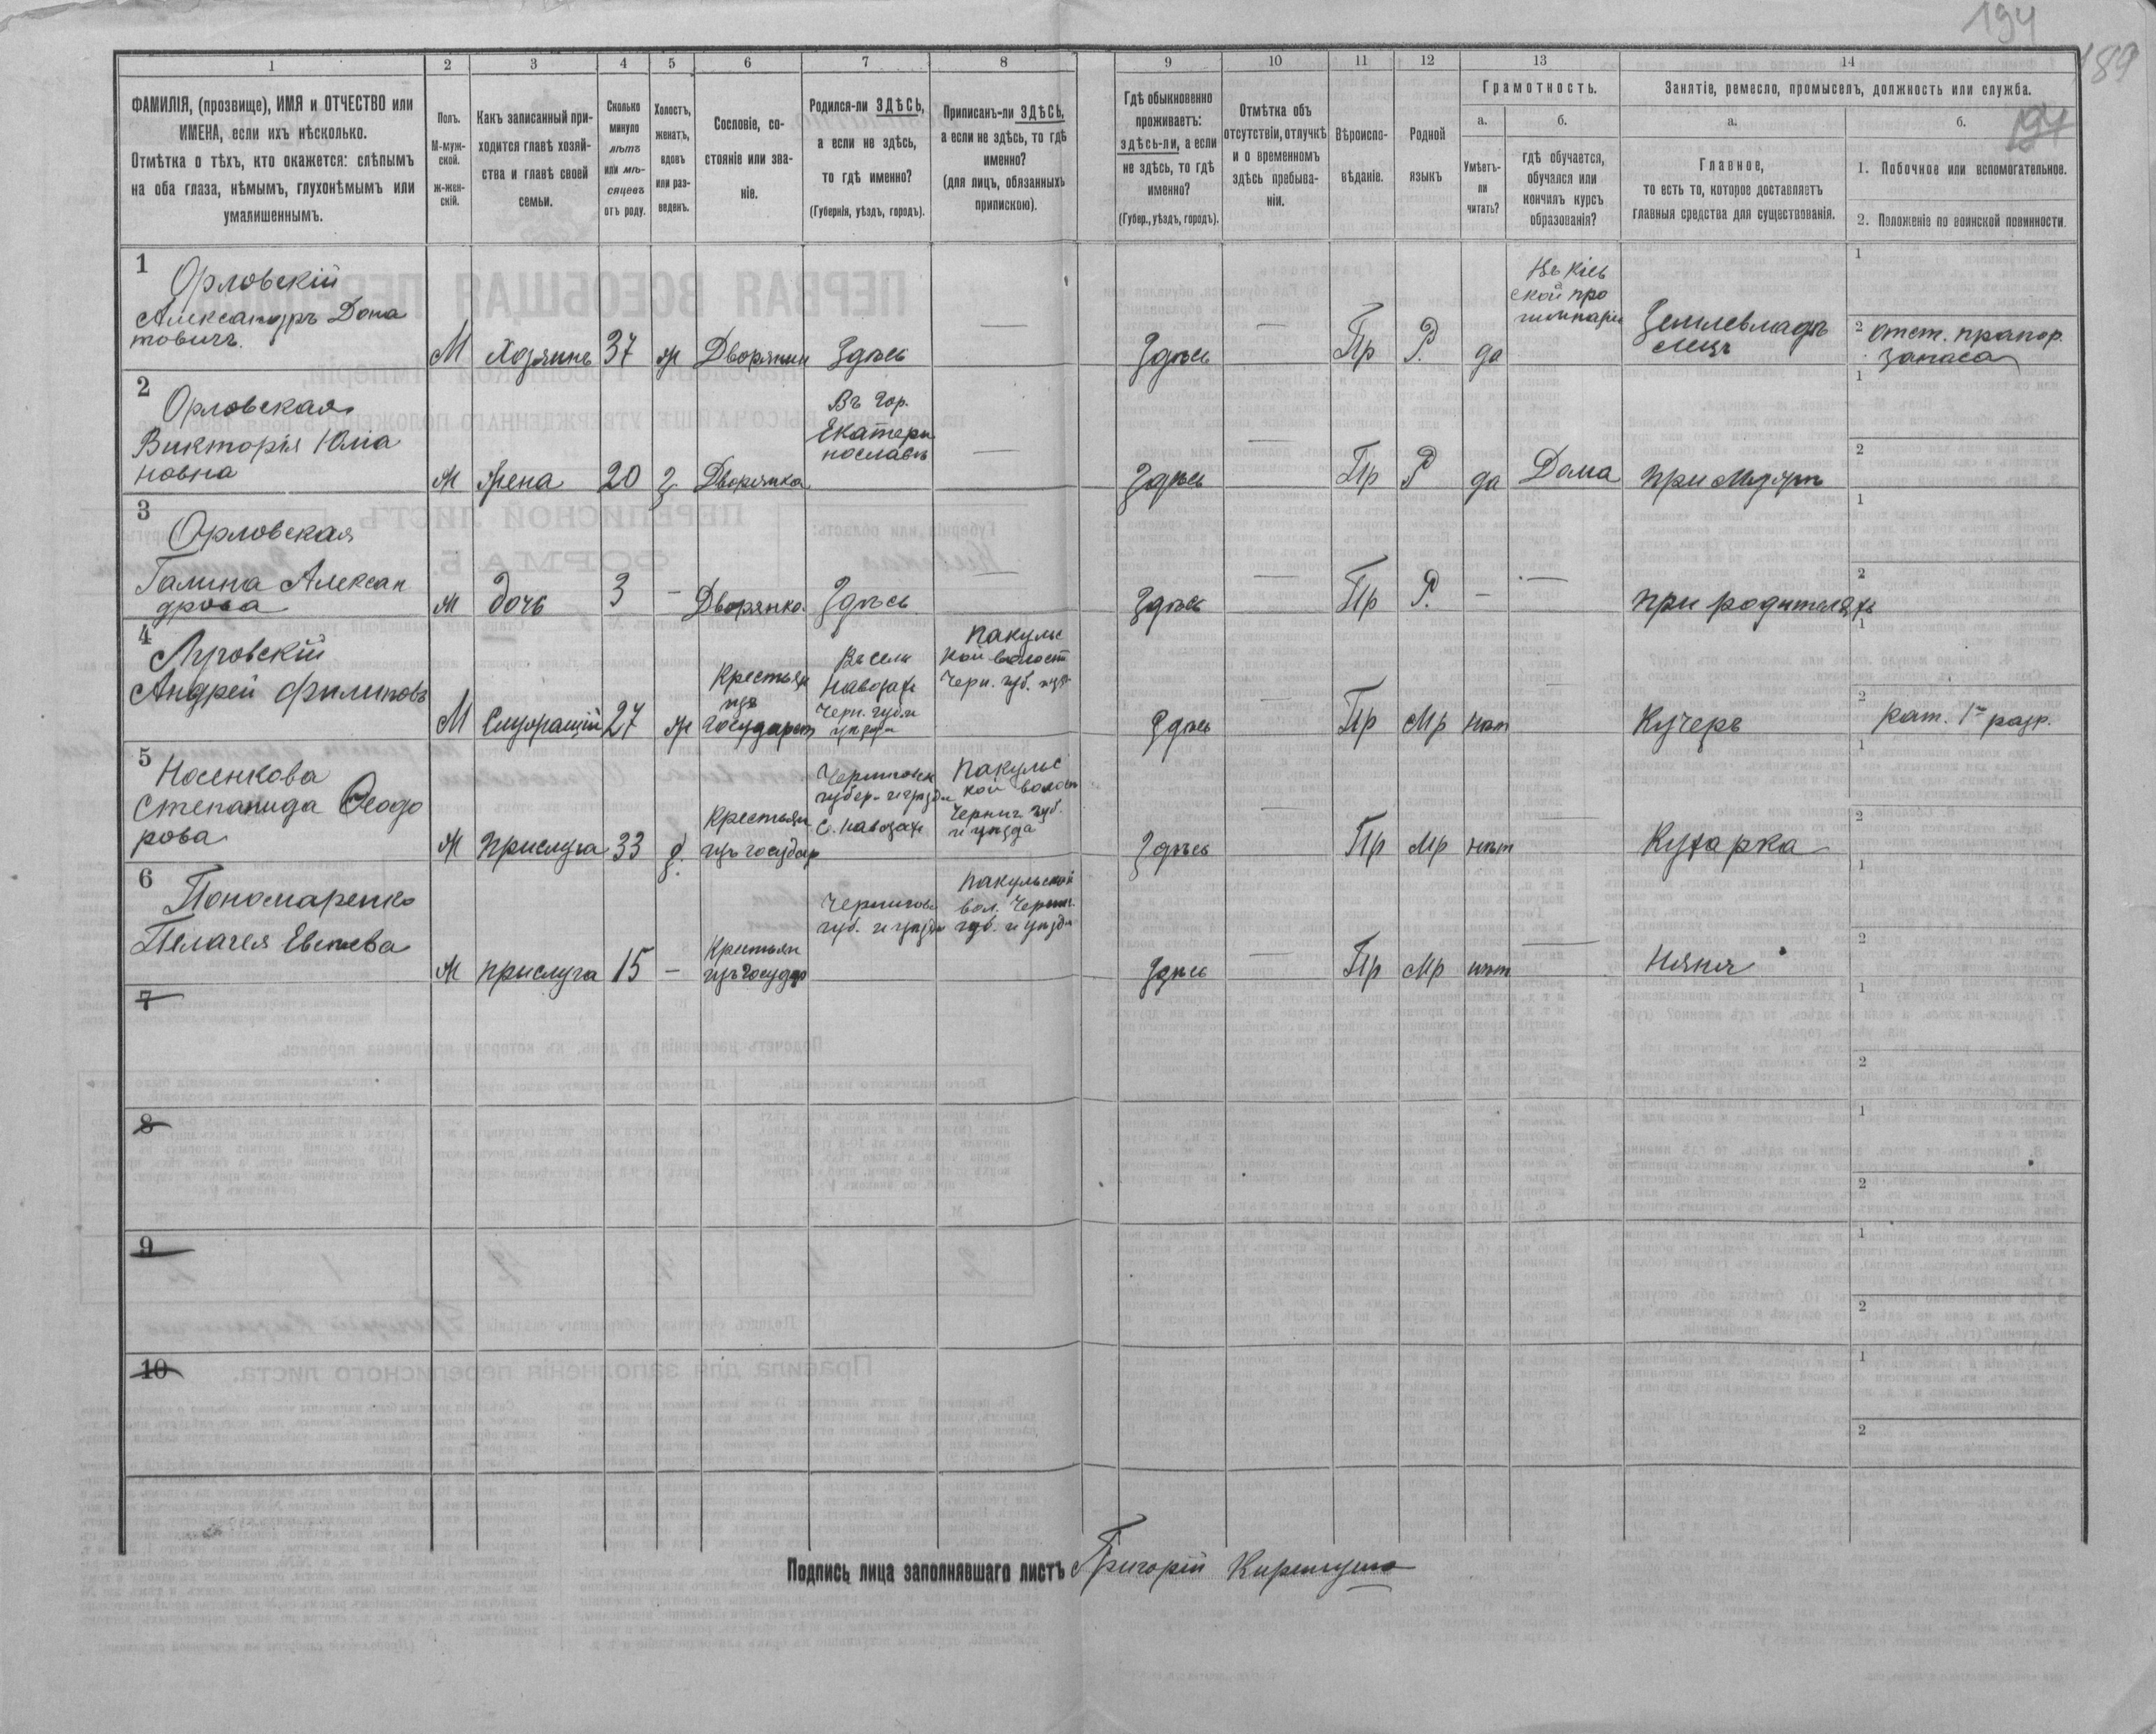 194
189
194
1
2
3
4
5
6
7
8
9
10
11
12
13
14
ФАМИЛІЯ, (прозвище), ИМЯ и ОТЧЕСТВО или
ИМЕНА, если ихъ нѣсколько.
Отмѣтка о тѣхъ, кто окажется: слѣпымъ
на оба глаза, нѣмымъ, глухонѣмымъ или
умалишеннымъ.
Полъ.
М-муж-
ской.
ж-жен-
скій.
Какъ записанный при-
ходится главѣ хозяй-
ства и главѣ своей
семьи.
Сколько
минуло
лѣтъ
или мѣ-
сяцевъ
отъ роду.
Холостъ,
женатъ,
вдовъ
или раз-
веденъ.
Сословіе, со-
стояніе или зва-
ніе.
Родился-ли ЗДѢСЬ,
а если не здѣсь,
то гдѣ именно?
(Губернія, уѣздъ, городъ).
Приписанъ-ли ЗДѢСЬ,
а если не здѣсь, то гдѣ
именно?
(для лицъ, обязанныхъ
припискою).
Гдѣ обыкновенно
проживаетъ:
здѣсь-ли, а если
не здѣсь, то гдѣ
именно?
(Губер., уѣздъ, городъ).
Отмѣтка объ
отсутствіи, отлучкѣ
и о временномъ
здѣсь пребыва-
ніи.
Вѣроиспо-
вѣданіе.
Родной
языкъ
Грамотность.
а.
Умѣетъ-
ли
читать?
б.
гдѣ обучается,
обучался или
кончилъ курсъ
образованія?
Занятіе, ремесло, промыселъ, должность или служба.
а.
Главное,
то есть то, которое доставляетъ
главныя средства для существованія.
б.
1. Побочное или вспомогательное.
2. Положеніе по воинской повинности.
1
Орловскій
Александръ Дона
товичъ.
М
Хозяинъ
37
ж
Дворянин
Здѣсь
—
Здѣсь
—
Пр
Р.
да
Въ Кіев
ской про
гимназіи
Землевладѣ
лецъ
1
2 отст. прапор.
запаса
2
Орловская
Викторія Юліа
новна
Ж
Жена
20
з
Дворянка
Въ гор.
Екатери
нославѣ
—
Здѣсь
—
Пр
Р
да
Дома
при мужѣ
1
2
3
Орловская
Галина Алексан
дрова
ж
дочь
3
—
Дворянка.
Здѣсь
—
Здѣсь
—
Пр
Р.
—
—
при родителяхъ
1
2
4
Андрей Филиповъ
М
Служащій
27
ж
Крестьян
государст
Въ селѣ
Навозахъ
Черн. губ. и
уѣзда
Пакульс
кой волост
Черн. губ.
Здѣсь
—
Пр
Мр
нѣт
—
Кучеръ
1
2 рат. 1го разр.
5
Носенкова
Степанида Ѳеодо
рова
Ж
Прислуга
33
Крестьян
государ
Черниговск
губер. и уѣзда
с. Навозахъ
Пакульс
кой волости
Черниг губ.
и уѣзда
Здѣсь
—
Пр
Мр
нѣт
Кухарка
1
2
6
Пономаренко
Пелагея Евсѣева
Ж
прислуга
15
—
Крестьян
государ
Чернигов
губ. и уѣзда
Пакульской
вол. Черниг.
губ. и уѣзда
Здѣсь
—
Пр
Мр
нѣт
—
Няня
1
2
7
1
2
8
1
2
9
1
2
10
1
2
Подпись лица заполнявшаго листъ Григорій